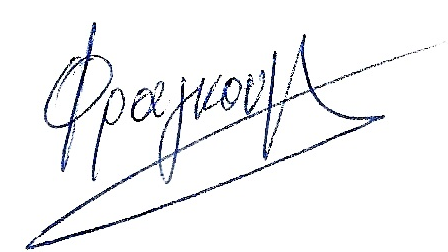 Φραγκουλ